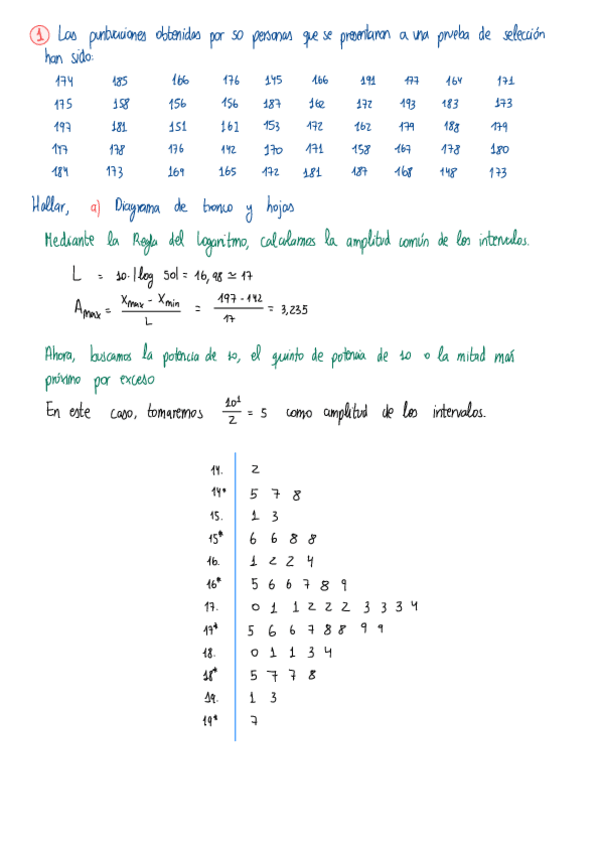 1 Las puntuaciones obtenidas por 50 personas que se presentaron a una prueba de selección
han sido:
174 185 166 176 145 166 191 177 164 171
175 158 156 156 187 162 172 193 183 173
197 181 151 161 153 172 162 179 188 179
178 176 142 170 171 158 167 178 180
184 173 169 165 172 181 187 168 148 173
Hallar, a) Diagrama de tronco y hojas
Mediante la Regla del logaritmo, calculamos la amplitud común de los intervalos.
L = 10·|log 50| = 16,98 ≃ 17
Amax = Xmax - Xmin / L = 197 - 142 / 17 = 3,235
Ahora, buscamos la potencia de 10, el quinto de potencia de 10 o la mitad más
próximo por exceso
En este caso, tomaremos 10¹/2 = 5 como amplitud de los intervalos.
14. 2
14* 5 7 8
15. 1 3
15* 6 6 8 8
16. 1 2 2 4
16* 5 6 6 7 8 9
17. 0 1 1 2 2 2 3 3 3 4
17* 5 6 6 7 8 8 9 9
18. 0 1 1 3 4
18* 5 7 7 8
19. 1 3
19* 7